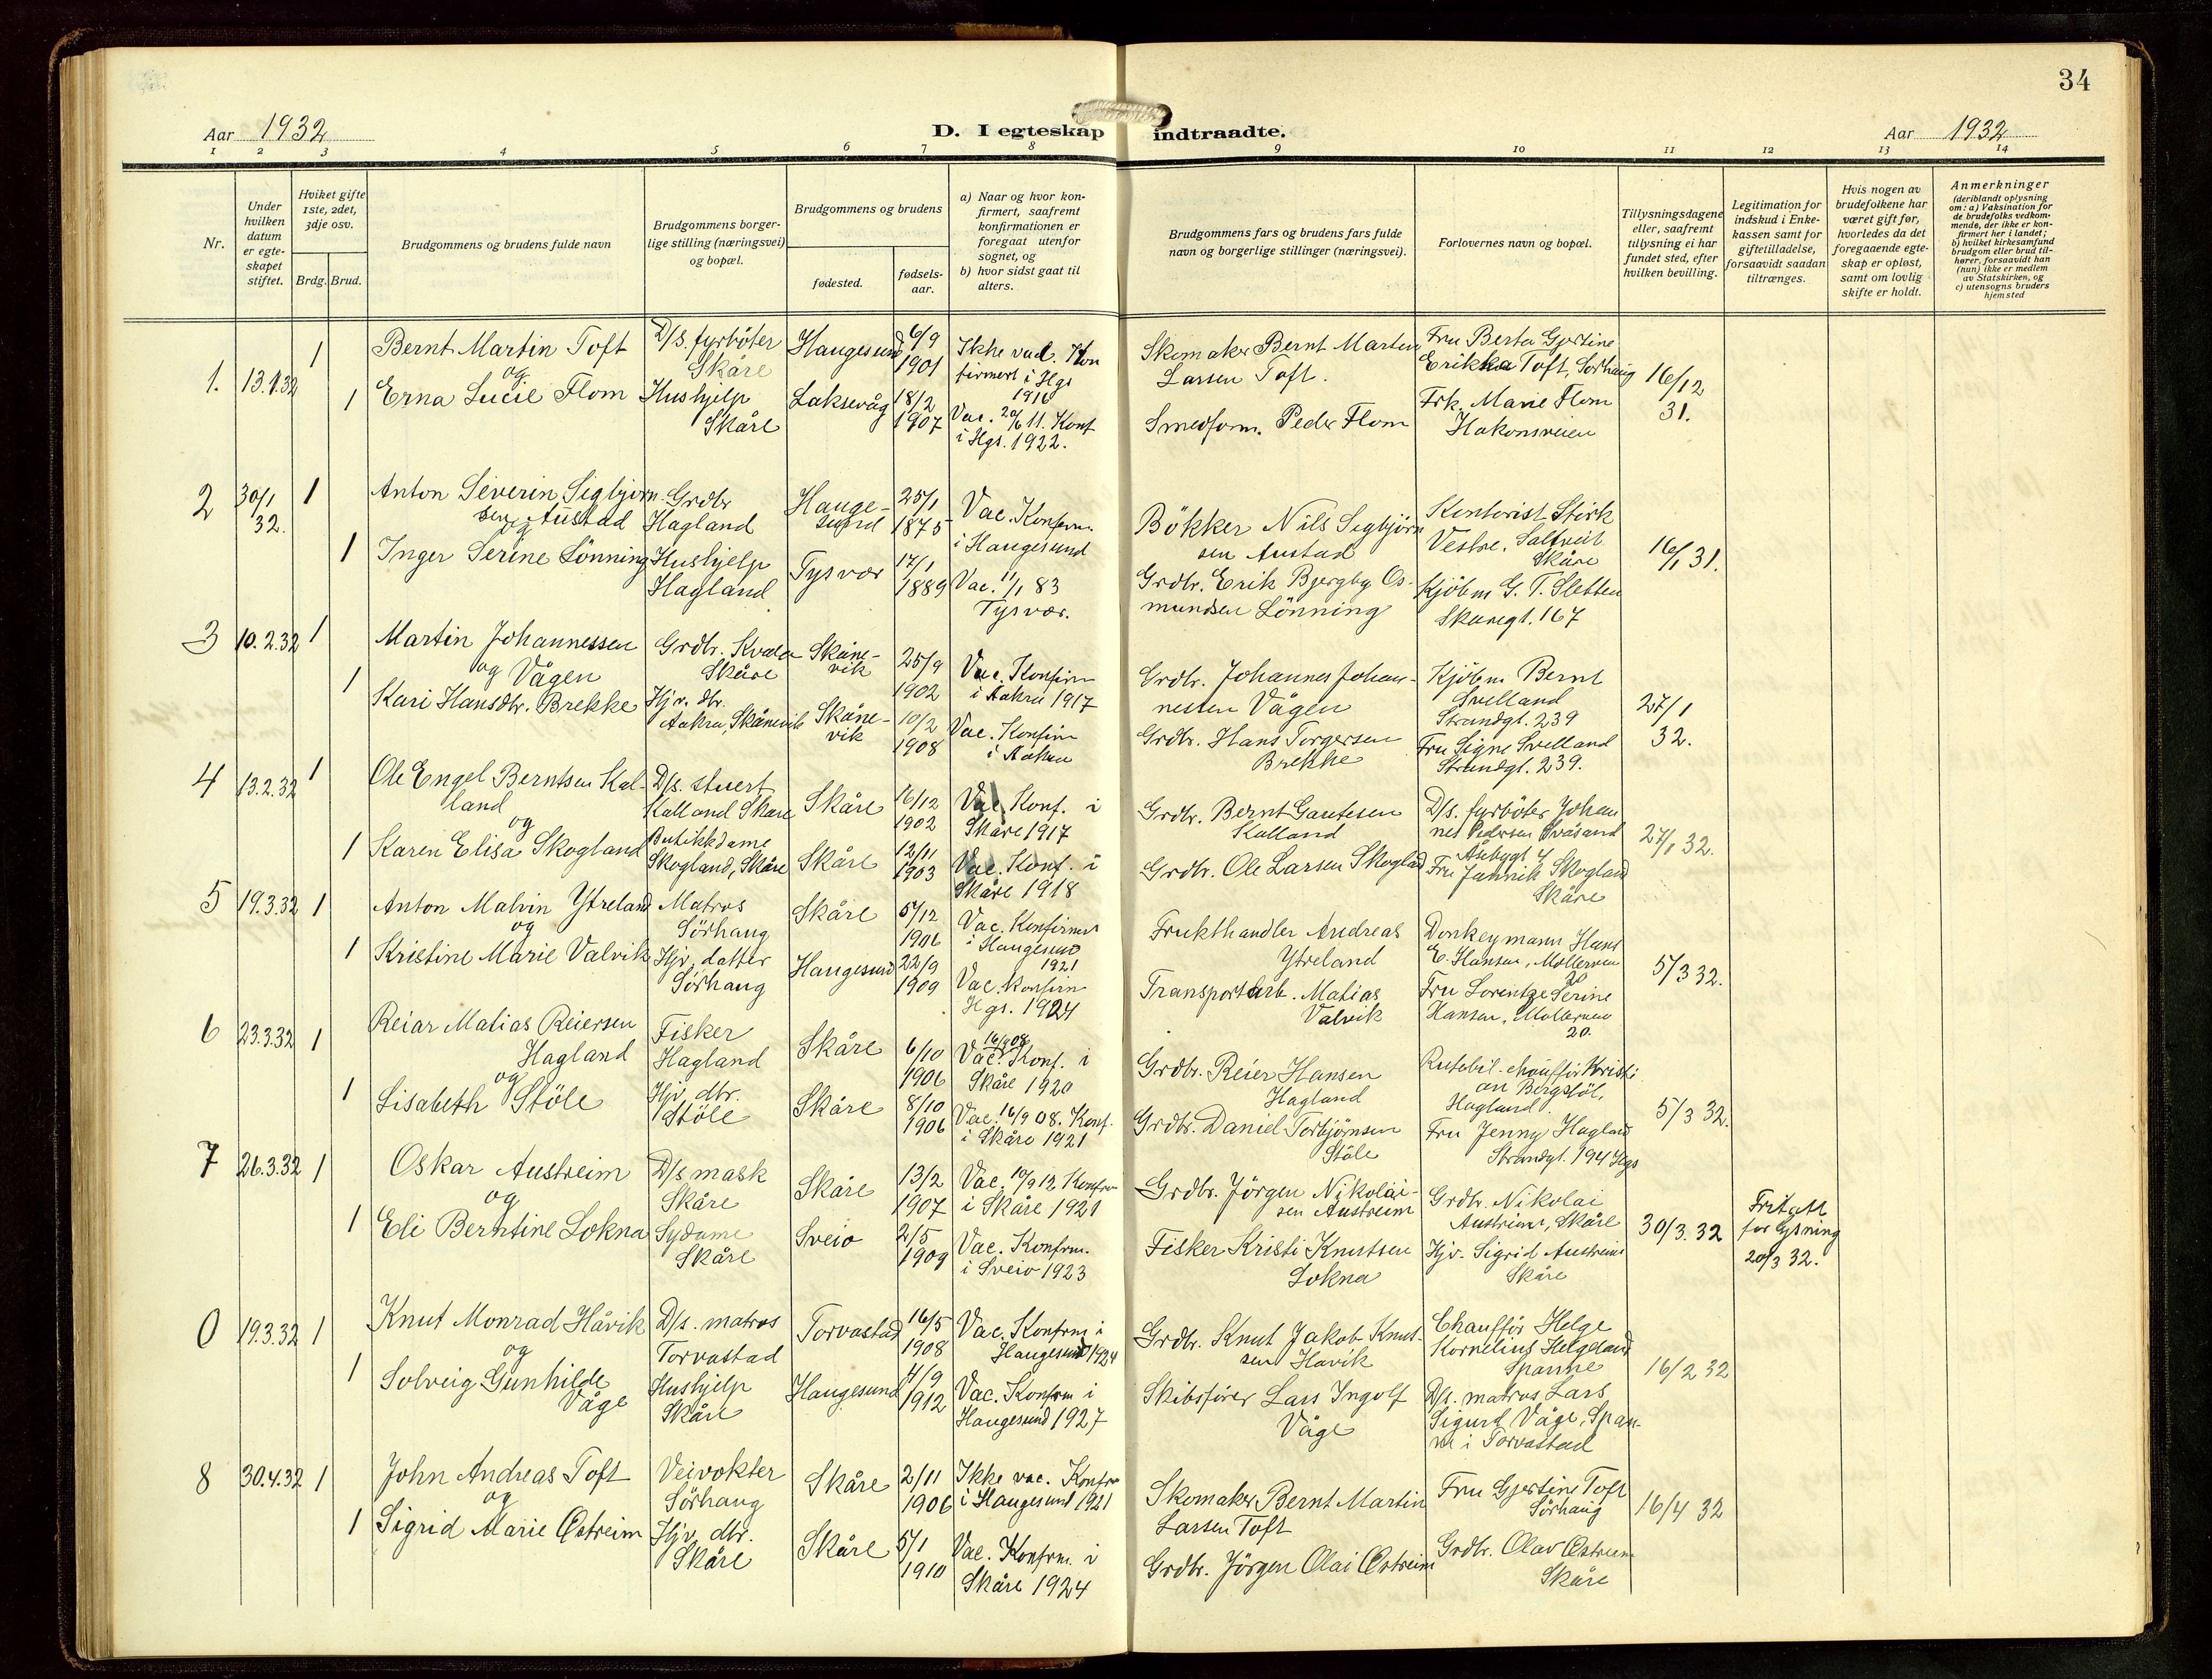 34
Aar 1932
D. I egteskap indtraadte.
Aar 1932
1 2 3 4 5 6 7 8 9 10 11 12 13 14
Nr.
Under hvilken datum er egteskapet stiftet.
Hviket gifte 1ste, 2det, 3dje osv.
Brdg. Brud.
Brudgommens og brudens fulde navn
Brudgommens borgerlige stilling (næringsvei) og bopæl.
Brudgommens og brudens
fødested.
fødselsaar.
a) Naar og hvor konfirmert, saafremt konfirmationen er foregaat utenfor sognet, og
b) hvor sidst gaat til alters.
Brudgommens fars og brudens fars fulde navn og borgerlige stillinger (næringsvei).
Forlovernes navn og bopæl.
Tillysningsdagene eller, saafremt tillysning ei har fundet sted, efter hvilken bevilling.
Legitimation for indskud i Enkekassen samt for giftetilladelse, forsaavidt saadan tiltrænges.
Hvis nogen av brudefolkene har været gift før, hvorledes da det foregaaende egteskap er opløst, samt om lovlig skifte er holdt.
Anmerkninger (deriblandt oplysning om: a) Vaksination for de brudefolks vedkommende, der ikke er konfirmert her i landet; b) hvilket kirkesamfund brudgom eller brud tilhører, forsaavidt han (hun) ikke er medlem av Statskirken, og c) utensogns bruders hjemsted
1. 13.1.32 1 Bernt Martin Toft D/s. fyrböter Skåre Haugesund 6/9 1901 Ikke vacl. Konfirmert i Hgs 1916 Skomaker Bernt Martin Larsen Toft. Fru Berta Gjertine Erikka Toft, Sørhaug 16/12 31.
og
1 Erna Lucie Flom Hushjelp Skåre Laksevåg 18/2 1907 Vac. 20/6 11. Konf i Hgs. 1922. Smedform. Peder Flom Frk. Marie Flom Hakonsveien
2 30/1 32. 1 Anton Severin Sigbjørnsen Austad Grdbr Hagland Haugesund 25/1 1875 Vac. Konfirm. i Haugesund Bökker Nils Sigbjørnsen Austad Kontorist Stirk Vestre, Saltveit Skåre 16/1 31.
og
1 Inger Serine Lönning Hushjelp Hagland Tysvær 17/1 1889 Vac. 11/1 83 Tysvær. Grdbr. Erik Bjergby Osmundsen Lönning Kjöbm G. T. Sletten Skaregt. 167
3 10.2.32 1 Martin Johannessen Vågen Grdbr. Kvala Skåre Skånevik 25/9 1902 Vac. Konfirm i Aakra 1917 Grdbr. Johannes Johannessen Vågen Kjöbm Bernt Svelland Strandgt. 239 27/1 32.
og
1 Kari Hansdtr. Brekke Hjv. dtr. Aakra, Skånevik Skånevik 10/2 1908 Vac. Konfirm i Aakra Grdbr. Hans Torgersen Brekke Fru Signe Svelland Strandgt. 239.
4 13.2.32 1 Ole Engel Berntsen Kalland D/s. stuert Kalland Skåre Skåre 16/12 1902 Vac. Konf. i Skåre 1917 Grdbr. Bernt Gautesen Kalland D/s. fyrböter Johannes Pedersen Svåsand Åsebygt 4 27/1 32.
og
1 Karen Elisa Skogland Butikkdame Skogland, Skåre Skåre 12/11 1903 Vac. Konf. i Skåre 1918 Grdbr. Ole Larsen Skogland Fru Jannik Skogland Skåre
5 19.3.32 1 Anton Malvin Ytreland Matros Sörhaug Skåre 5/12 1906 Vac. Konfirmert i Haugesund 1921 Frukthandler Andreas Ytreland Donkeymann Hans E. Hansen, Møllerveien 20 5/3 32.
og
1 Kristine Marie Valvik Hjv. datter Sörhaug Haugesund 22/9 1909 Vac. Konfirm Hgs. 1924 Transportarb. Matias Valvik Fru Lorentze Serine Hansen, Møllerveien 20.
6 23.3.32 1 Reiar Matias Reiersen Hagland Fisker Hagland Skåre 6/10 1906 16/9 08 Vac. Konf. i Skåre 1920 Grdbr. Reier Hansen Hagland Rutebil-chauffør Kristian Bergstöl, Hagland. 5/3 32.
og
1 Lisabeth Stöle Hjv. dtr. Stöle Skåre 8/10 1906 Vac. 16/9 08. Konf. i Skåre 1921 Grdbr. Daniel Torbjørnsen Stöle Fru Jenny Hagland Strandgt. 194 Hgs
7 26.3.32 1 Oskar Austreim D/s mask Skåre Skåre 13/2 1907 Vac. 10/9 12 Konfirm i Skåre 1921 Grdbr. Jörgen Nikolaisen Austreim Grdbr. Nikolai Austreim, Skåre 30/3. 32 Fritatt for lysning 20/3 32.
og
1 Eli Berntine Lokna Sydame Skåre Sveio 2/5 1909 Vac. Konfrm. i Sveio 1923 Fisker Kristi Knutsen Lokna Hjv. Sigrid Austreim Skåre
0 19.3.32 1 Knut Monrad Håvik D/s. matros Torvastad Torvastad 16/5 1908 Vac. Konfrm i Haugesund 1924 Grdbr. Knut Jakob Knutsen Håvik Chaufför Helge Kornelius Helgeland Spanne 16/2 32
og
1 Solveig Gunhilde Våge Hushjelp Skåre Haugesund 4/9 1912 Vac. Konfrm i Haugesund 1927 Skibsfører Lars Ingolf Våge D/s. matros Lars Sigurd Våge, Spanne i Torvastad
8 30.4.32 1 John Andreas Toft Veivokter Sörhaug Skåre 2/11 1906 Ikke vac. Konfrm i Haugesund 1921 Skomaker Bernt Martin Larsen Toft Fru Gjertine Toft Sörhaug 16/4 32
og
1 Sigrid Marie Østreim Hjv. dtr. Skåre Skåre 5/1 1910 Vac. Konfrm. i Skåre 1924 Grdbr. Jörgen Olai Østreim Grdbr. Olav Østreim Skåre